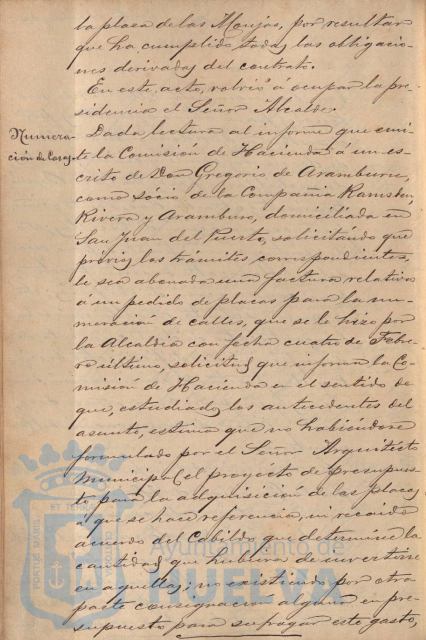 la plaza de las Monjas, por resultar
que ha cumplido todas las obligacio-
nes derivadas del contrato.
En este acto, volvió á ocupar la pre-
sidencia el Señor Alcalde.
Numera-
ción de Casas
Dada lectura al informe que emi-
te la Comisión de Hacienda á un es-
crito de Don Gregorio de Aramburu,
como sócio de la Compañia Ramsden,
Rivera y Aramburo, domiciliada en
San Juan del Puerto, solicitando que
prévios los trámites correspondientes,
le sea abonada una factura relativa
á un pedido de placas para la nu-
meración de calles, que se le hizo por
la Alcaldia con fecha cuatro de Febre-
ro último, solicitud que informa la Co-
misión de Hacienda en el sentido de
que, estudiados los antecedentes del
asunto, estima que no habiendose
formulado por el Señor Arquitecto
Municipal el proyecto de presupues-
to para la adquisición de las placas
a que se hace referencia, ni recaido
acuerdo del Cabildo que determine la
cantidad que hubiera de invertirse
en aquellas; no existiendo por otra
parte consignación alguna en pre-
supuesto para sufragar este gasto,
Ayuntamiento de
HUELVA
PORTUS MARIS ET TERRAE CUSTODIA